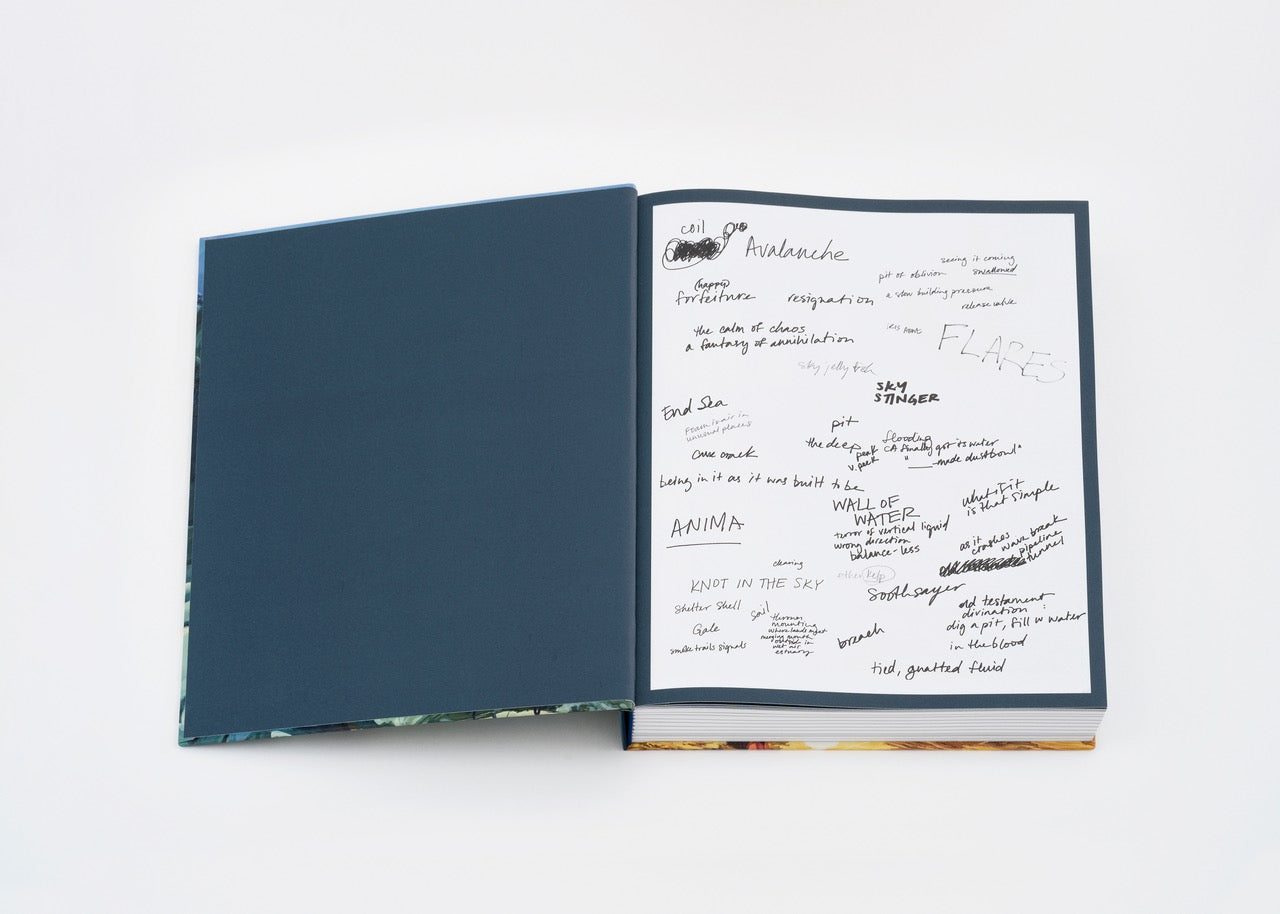 coil
Avalanche
seeing it coming
pit of oblivion swallowed
(happy)
forfeiture resignation
a slow building pressure
release valve
the calm of chaos
a fantasy of annihilation
FLARES
sky jelly
SKY
STINGER
End Sea
Foam is air in
unusual places
pit
the deep
peak
v. peek
flooding
CA finally got its water
" ____-made dustbowl"
being in it as it was built to be
WALL OF
WATER
terror of vertical liquid
wrong direction
balance-less
what if it
is that simple
ANIMA
as it
crashes wave break
pipeline
tunnel
clearing
KNOT IN THE SKY
other kelp
soothsayer
Shelter Shell
soil
Gale
smoke trails signals
where lands meet
merging mouth
wet
estuary
breach
old testament
divination :
dig a pit, fill w water
in the blood
tied, gnatted fluid